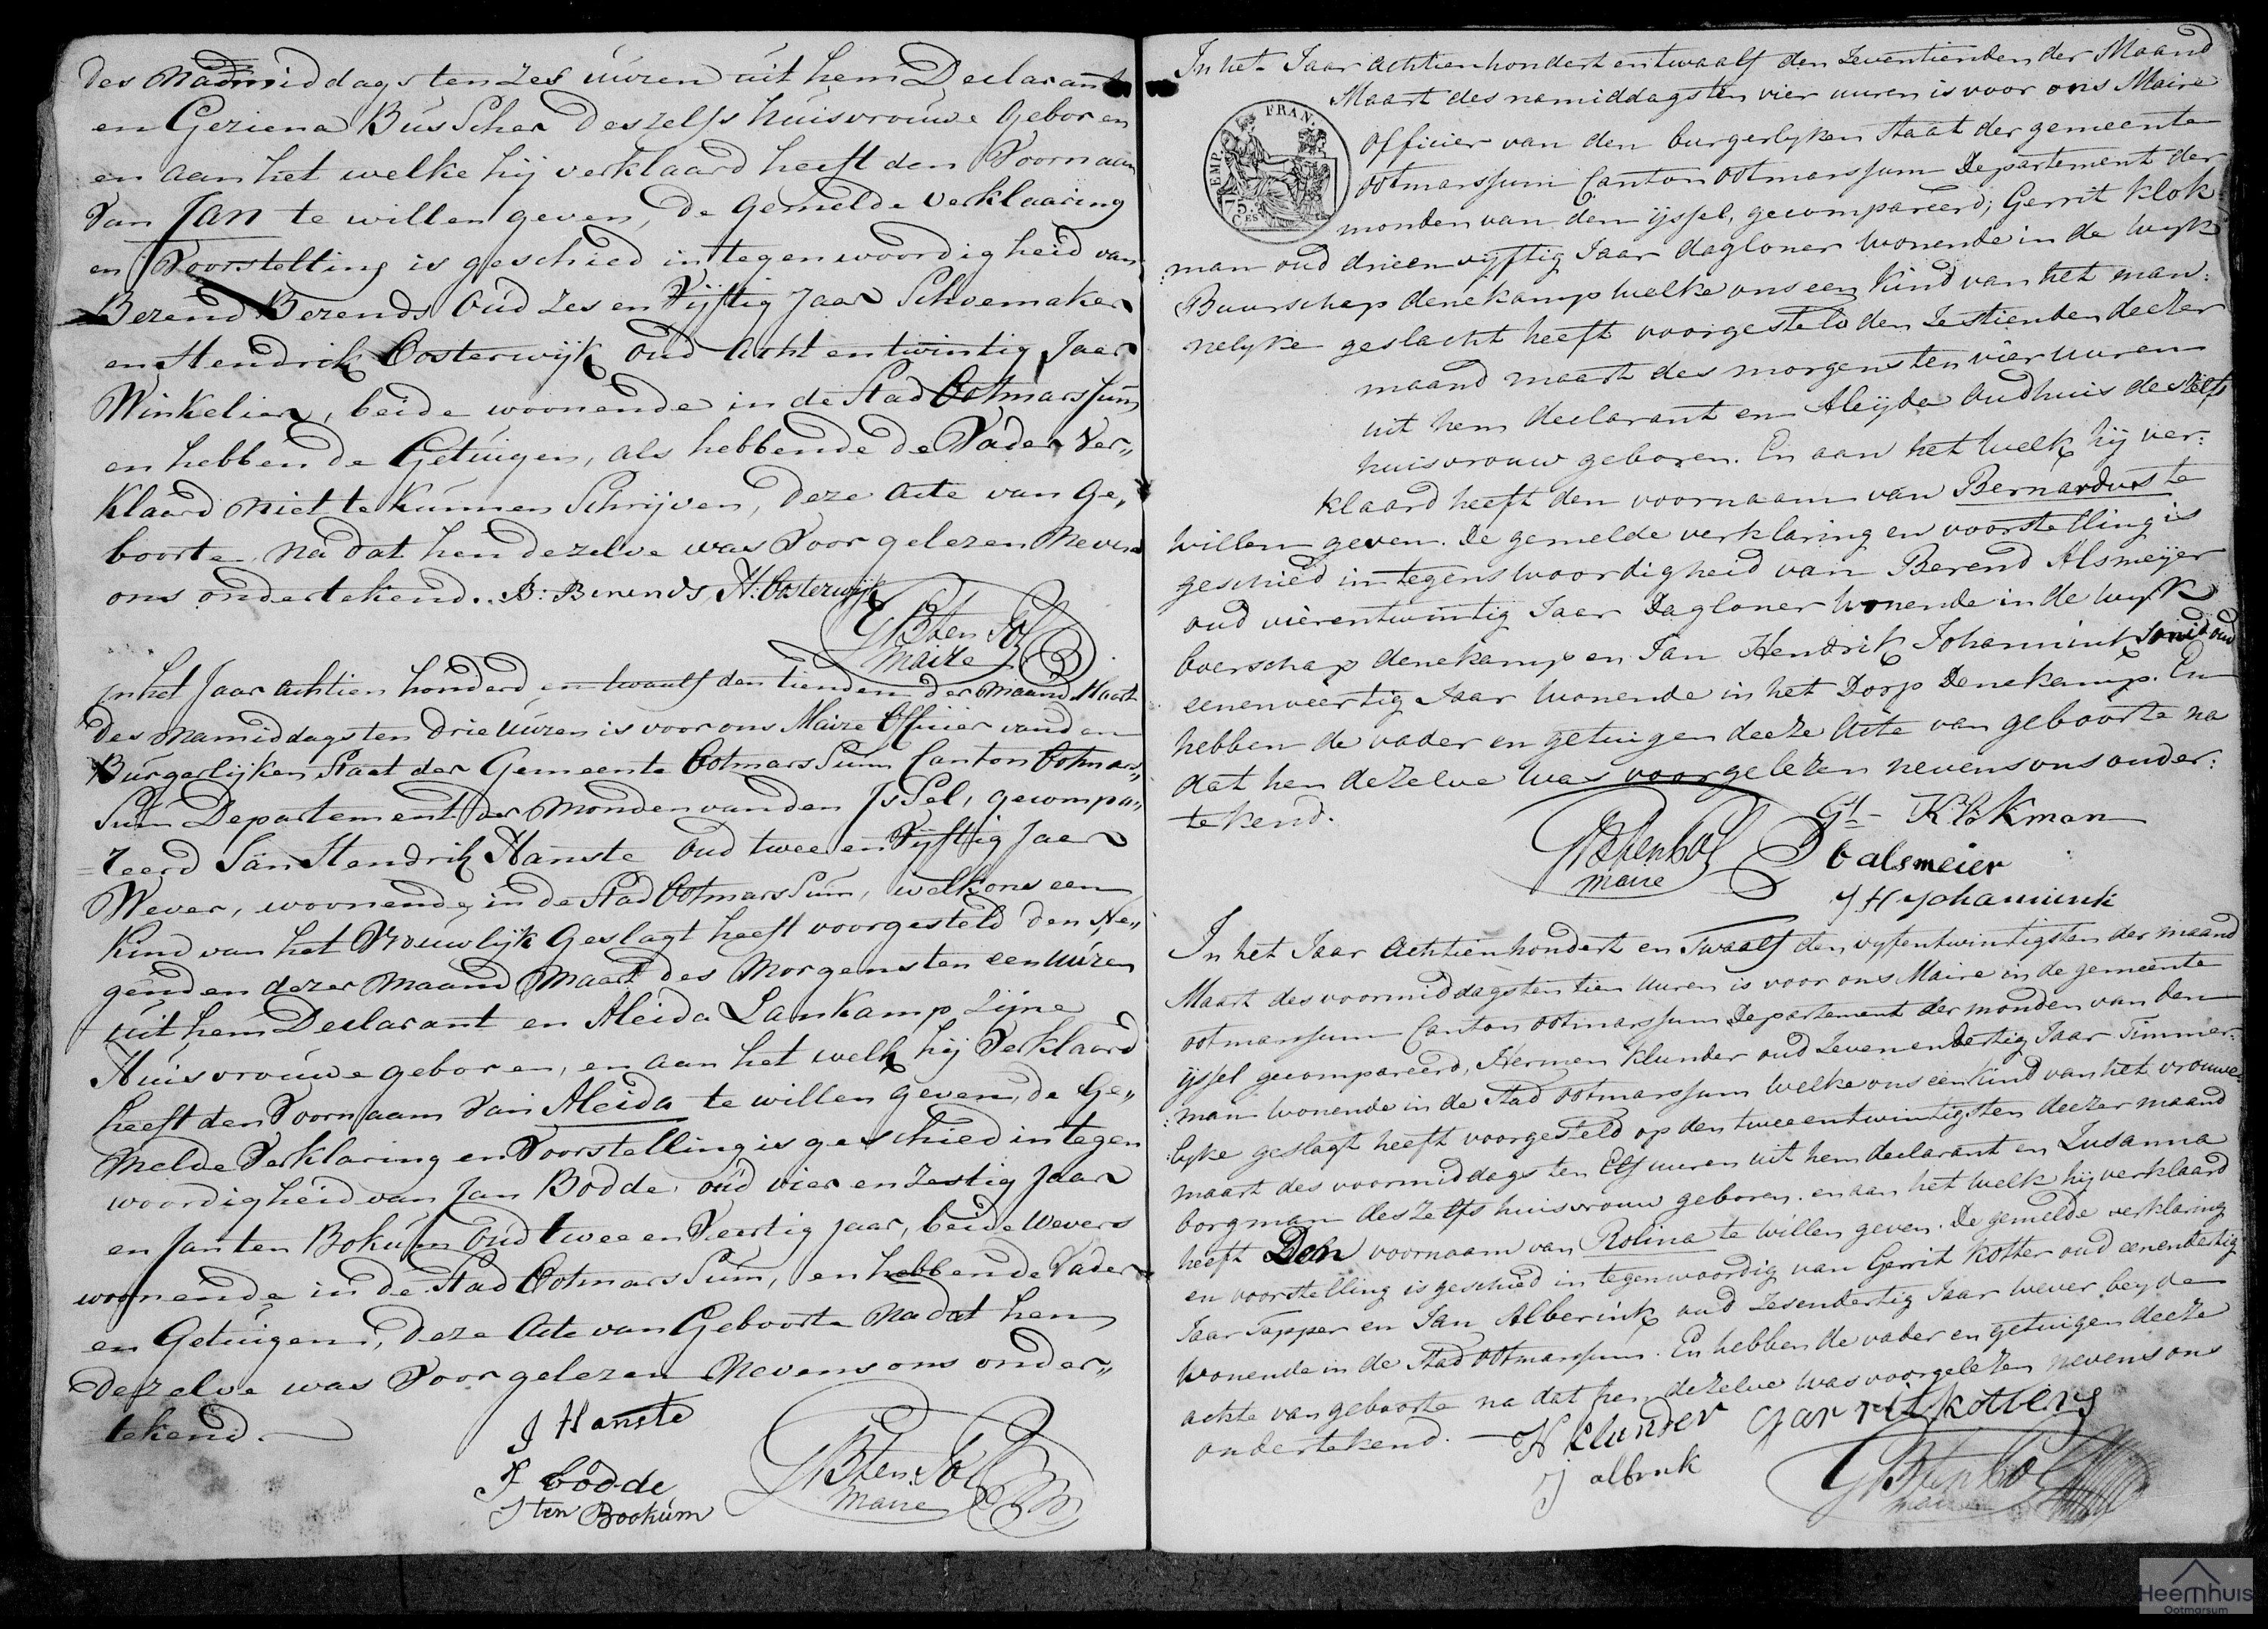 des Nadmiddags ten zes uuren uit hem Declarant
en Geziena Busscher deszelfs huisvrouwe geboren
en aan het welke hij verklaard heeft den Voornaam
Van Jan te willen geven, de gemelde verklaaring
en Voorstelling is geschied in tegenwoordigheid van
Berend Berends Oud zes en Vijftig Jaar Schoemaker
en Hendrik Oosterwijk Oud Acht en twintig Jaar
Winkelier, beide woonende in de Stad Ootmarssum
en hebben de Getuigen, als hebbende de Vader Ver„
Klaard niet te Kunnen Schrijven, deze Acte van Ge„
boorte, na dat hen dezelve was Voorgelezen Nevens
ons ondertekend. B: Berends H: Oosterwijk
GB ten Pol
Maire
In het Jaar Achtien honderd en twaalf den tienden der Maand Maart
des Namiddags ten drie Uuren is voor ons Maire Officier van den
Burgerlijken Staat der Gemeente Ootmarssum Canton Ootmars„
Sum Departement der Monden van den IsSel, gecompa„
=reerd Jan Hendrik Hanste Oud twee en Vijftig Jaar
Wever, woonende in de Stad Ootmarssum, welk ons een
Kind van het Vrouwlijk Geslagt heeft voorgesteld den Ne„
genden dezer Maand Maart des Morgens ten een Uuren
uit hem Declarant en Aleida Lankamp Zijne
Huisvrouwe geboren, en aan het welk hij Verklaard
heeft den Voornaam Van Aleida te willen geven, de Ge„
melde Verklaring en Voorstelling is geschied in tegen
woordigheid van Jan Bodde oud vier en Zestig Jaar
en Jan ten Bokum Oud twee en Veertig jaar, beide Wevers
woonende in de Stad Ootmarssum, en hebben de Vader
en Getuigen, deze Acte van Geboorte Na dat hen
dezelve was Voorgelezen Nevens ons onder„
tekend.
J Hanste
J bodde
J ten Bookum
GB ten Pol
Maire
In het Jaar Achtienhondert en twaalf den Zeventienden der Maand
Maart des namiddags ten vier uuren is voor ons Maire
officier van den burgerlyken Staat der gemeente
ootmarssum Canton ootmarssum Departement der
monden van den ijssel, gecompareerd; Gerrit Klok
:man oud drieenvyftig Jaar dagloner wonende in de wyk
Buurschap denekamp welke ons een Kind van het man:
nelyke geslacht heeft voorgesteld den Zestienden deezer
maand maart des morgens ten vier uuren
uit hem declarant en Aleijda Oudhuis deszelfs
huisvrouw geboren. En aan het welk hij ver:
klaard heeft den voornaam van Bernardus te
willen geven. De gemelde verklaring en voorstelling is
geschied in tegenswoordigheid van Berend Alsmeijer
oud vierentwintig Jaar Dagloner wonende in de wyk
boerschap denekamp en Jan Hendrik Johannink Smid oud
eenenveertig Jaar wonende in het Dorp Denekamp. En
hebben de vader en getuigen deeze Acte van geboorte na
dat hen dezelve was voorgelezen nevens ons onder:
tekend.
Gt- Klokman
GB ten Pol
maire
B alsmeier
J H Johannink
In het Jaar Achtienhondert en Twaalf den vyfentwintigsten der maand
Maart des voormiddags ten tien uuren is voor ons Maire in de gemeente
ootmarssum Canton ootmarssum Departement der monden van den
ijssel gecompareerd, Hermen Klunder oud Zevenendertig Jaar Timmer:
:man wonende in de Stad ootmarssum welke ons een kind van het vrouwe:
:lyke geslagt heeft voorgesteld op den tweeentwintigsten deezer maand
maart des voormiddags ten Elf uuren uit hem declarant en Zusanna
borgman deszelfs huisvrouw geboren. en aan het welk hij verklaard
heeft Den voornaam van Rolina te willen geven. De gemelde verklaring
en voorstelling is geschied in tegenwoordig van Gerrit Kotter oud eenendertig
Jaar Tapper en Jan Alberink oud Zesendertig Jaar wever beyde
wonende in de Stad ootmarssum. En hebben de vader en getuigen deeze
ackte van geboorte na dat hen dezelve was voorgelezen nevens ons
ondertekend.
H klunder garrit kotters
J albrink
GB ten Pol
maire
EMP. FRAN.
75 CES
Heemhuis
Ootmarsum